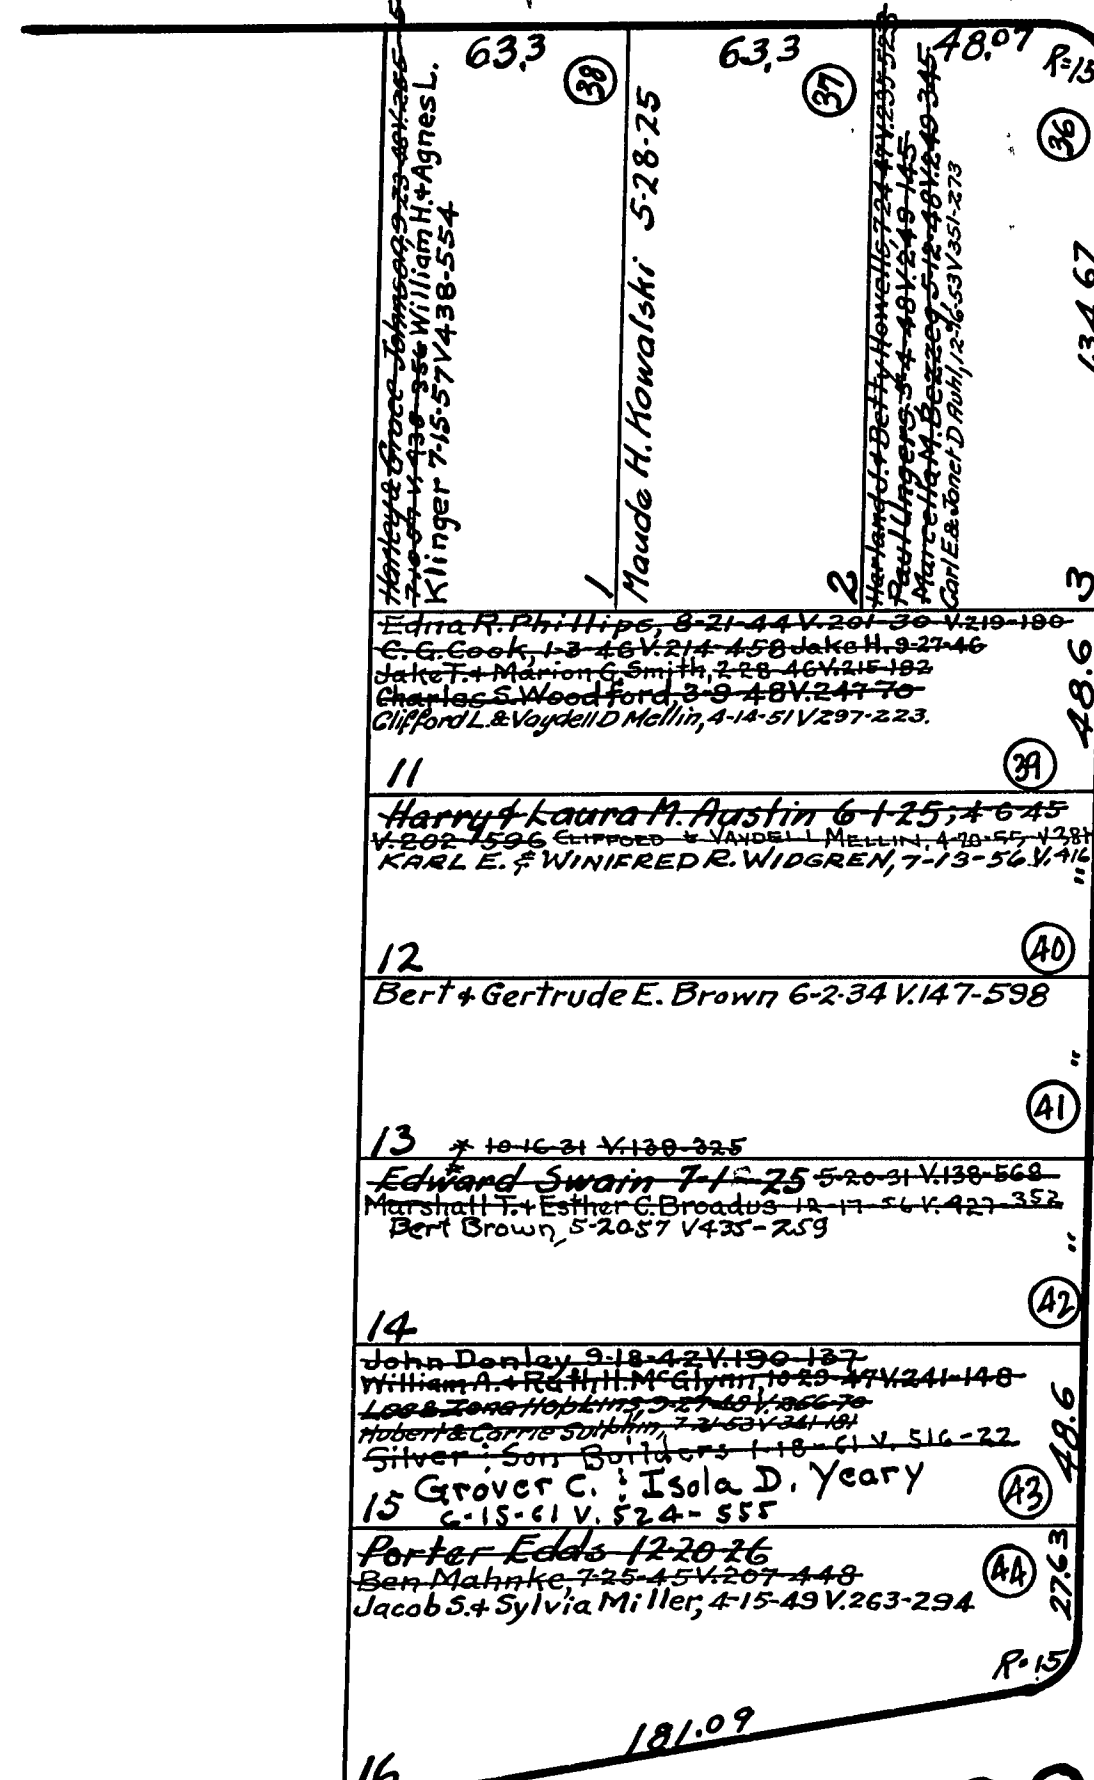 63.3
38
Harley & Grace Johnson, 9-23-48 V.255-5
7-10-57 V.438-356 William H. & Agnes L.
Klinger 7-15-57 V438-554
1
63.3
37
Maude H. Kowalski 5-28-25
2
48.07
R=15
36
Harland J. & Betty Howells, 7-24-47 V.235-523
Paul Ungers 5-4-48 V.249-145
Marcella M. Bezzeg 5-12-48 V.249-345
Carl E. & Janet D Auhl, 12-16-53 V351-273
134.67
3
Edna R. Phillips, 8-21-44 V.201-30 V.219-180
C. G. Cook, 1-3-46 V.214-458 Jake H. 9-27-46
Jake T. & Marion G. Smith, 2-28-46 V.215-182
Charles S. Woodford, 3-9-48 V.247-70
Clifford L. & Vaydell D Mellin, 4-14-51 V297-223.
48.6
11
39
Harry & Laura M. Austin 6-1-25; 4-6-45
V.202-596 CLIFFORD & VAYDELL MELLIN, 4-20-55, V.381
KARL E. & WINIFRED R. WIDGREN, 7-13-56 V.416
"
12
40
Bert & Gertrude E. Brown 6-2-34 V.147-598
"
41
13 * 10-16-31 V.138-325
Edward Swain 7-1-25 5-20-31 V.138-568
*
Marshall T. & Esther C. Broadus 12-17-56 V. 427-352
Bert Brown, 5-20-57 V435-259
"
42
14
John Donley 9-18-42 V.190-137
William A. & Ruth H. McGlynn, 10-29-47 V.241-148
Lee & Zona Hopkins, 9-27-48 V.256-70
Hubert & Carrie Sulphin, 7-21-53 V341-181
Silver & Son Builders 1-18-61 V. 516-22
Grover C. & Isola D. Yeary
15 6-15-61 V. 524-555
48.6
43
Porter Edds 12-20-26
Ben Mahnke, 7-25-45 V.207-448
Jacob S. & Sylvia Miller, 4-15-49 V.263-294
44
27.63
R=15
181.09
16